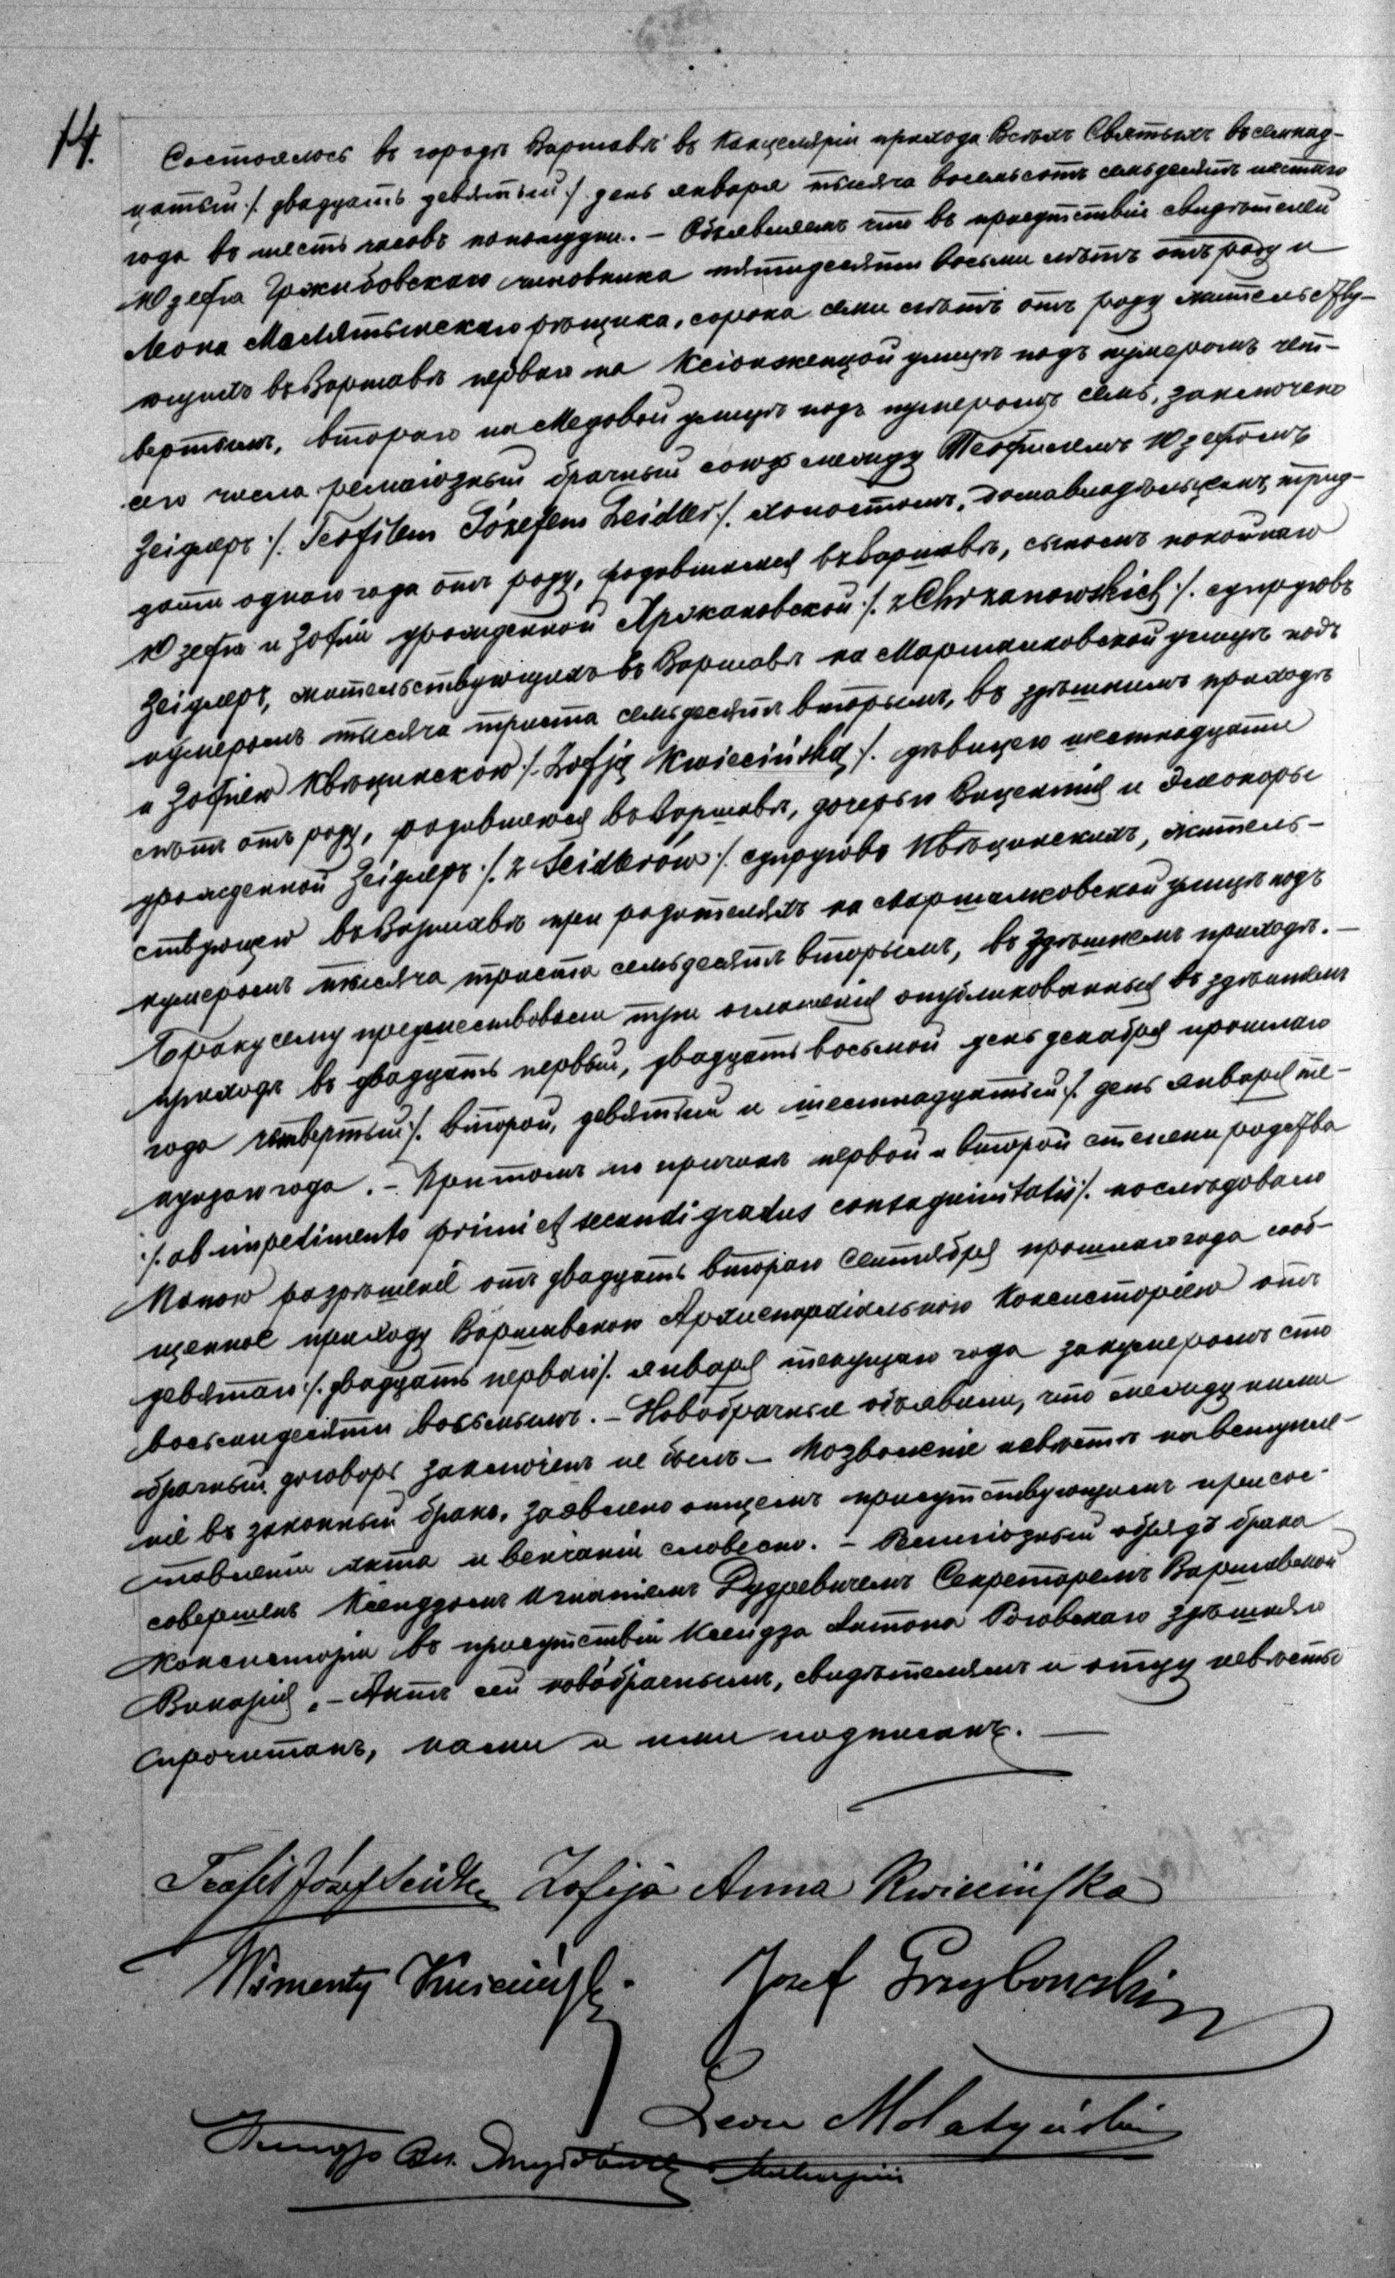 14.
Состоялось въ городѣ Варшавѣ въ Канцеляріи прихода Всѣхъ Святыхъ въ семнад-
цатый /. двадцать девятый /. день января тысяча восемьсотъ семьдесятъ шестаго
года въ шесть часовъ пополудни. — Объявляемъ что въ присутствіи свидѣтелей
Юзефа Гржибовскаго чиновника пятидесяти восьми лѣтъ отъ роду и
Леона Малятынскаго рѣщика, сорока семи лѣтъ отъ роду жительству-
ющихъ въ Варшавѣ перваго на Ксіонженцой улицѣ подъ нумеромъ чет-
вертымъ, втораго на Медовой улицѣ подъ нумеромъ семь, заключенъ
сего числа религіозный брачный союзъ между Теофилемъ Юзефомъ
Зейдлеръ /. Teofilem Józefem Zeidler /. холостымъ, домавладѣльцемъ, трид-
цати одного года отъ роду, родившимся въ Варшавѣ, сыномъ покойнаго
Юзефа и Зофіи урожденной Хржановской /. z Chrzanowskich /. супруговъ
Зейдлеръ, жительствующимъ въ Варшавѣ на Маршалковской улицѣ подъ
нумеромъ тысяча триста семьдесятъ вторымъ, въ здѣшнимъ приходѣ
и Зофіею Квѣцинскою /. Zofją Kwiecińską /. дѣвицею шестнадцати
лѣтъ отъ роду, родившеюся въ Варшавѣ, дочерью Винцентія и Элеоноры
урожденной Зейдлеръ /. z Zeidlerów /. супруговъ Квѣцинскихъ, житель-
ствующею въ Варшавѣ при родителяхъ на Маршалковской улицѣ подъ
нумеромъ тысяча триста семьдесятъ вторымъ, въ здѣшнемъ приходѣ. —
Браку сему предшествовали три оглашенія опубликованныя въ здѣшнемъ
приходѣ въ двадцать первый, двадцать восьмой день декабря прошлаго
года четвертый /. второй, девятый и шестнадцатый /. день января те-
кущаго года. — Притомъ по причинѣ первой и второй степени родства
/. ab impedimento primi et secundi gradus consaguinitatis /. послѣдовало
Папою разрѣшеніе отъ двадцать втораго Сентября прошлаго года сооб-
щенное приходу Варшавскою Архиепархіальною Консисторіею отъ
девятаго /. двадцать перваго /. января текущаго года за нумеромъ сто
восемьдесяти восьмымъ. — Новобрачные объявили, что между ними
брачный договоръ заключенъ не былъ — Позволеніе невѣстѣ на вступле-
ніе въ законный бракъ, заявлено отцемъ присутствующимъ при сос-
тавленіи акта и вѣнчаніи словесно. — Религіозный обрядъ брака
совершенъ Ксендзомъ Игнатіемъ Дудревичемъ Секретаремъ Варшавской
Консисторіи въ присутствіи Ксендза Антона Роговскаго здѣшняго
Викарія. — Актъ сей новобрачнымъ, свидѣтелямъ и отцу невѣсты
прочитанъ, нами и ими подписанъ. —
Teofil Józef Zeidler Zofija Anna Kwiecińska
Wincenty Kwieciński Józef Grzybowski
Leon Molatyński
Ксендзъ